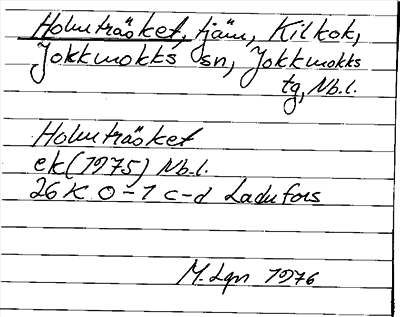 Holmträsket, tjärn, Kilkok,
Jokkmokks sn, Jokkmokks
tg, Nb.l.
Holmträsket
ek (1975) Nb.l.
26 K 0-1 c-d Ladufors
M. Lgn 1976